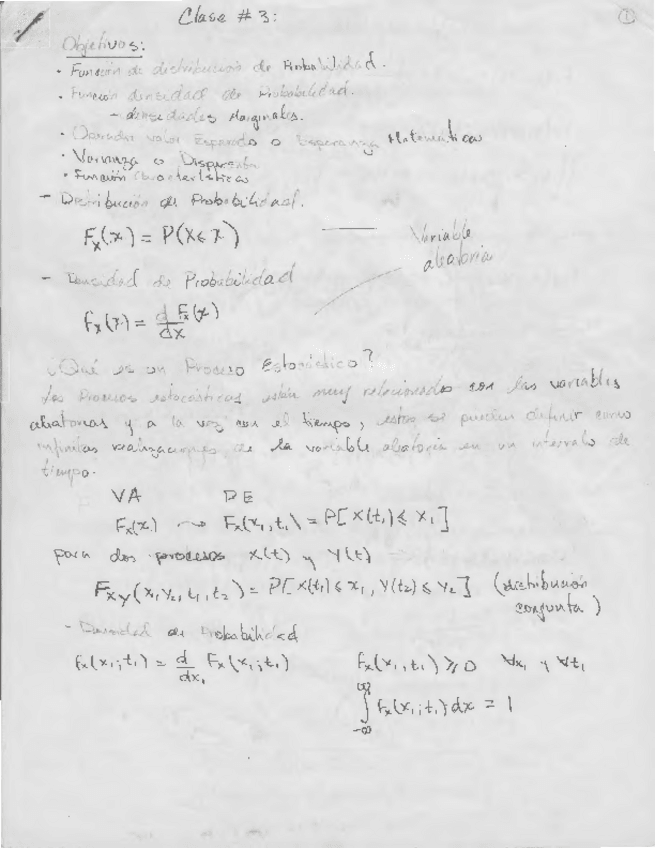 Clase # 3:
1
Objetivos:
• Función de distribución de Probabilidad.
• Función densidad de Probabilidad.
– densidades Marginales.
• Operador valor Esperado o Esperanza Matematica
• Varianza o Dispersión
• Función Característica
– Distribución de Probabilidad.
Fx(x) = P(X ≤ x) — Variable aleatoria
– Densidad de Probabilidad
fx(x) = d Fx(x) / dx
¿Qué es un Proceso Estocástico?
Los Procesos estocásticos están muy relacionados con las variables
aleatorias y a la vez con el tiempo, estos se pueden definir como
infinitas realizaciones de la variable aleatoria en un intervalo de
tiempo.
VA PE
Fx(x) ⇝ Fx(x1, t1) = P[X(t1) ≤ x1]
para dos procesos X(t) y Y(t)
Fxy(x1, y2, t1, t2) = P[X(t1) ≤ x1, Y(t2) ≤ y2] (distribución
conjunta)
– Densidad de Probabilidad
fx(x1; t1) = d/dx1 Fx(x1; t1) fx(x1, t1) ≥ 0 ∀x1 y ∀t1
∫_{-∞}^{∞} fx(x1; t1) dx = 1